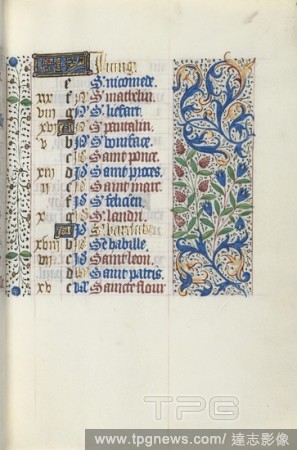 Juing
e S. nicomede.
xix f S. mathelin
viii g S. liefart.
xvi S. pantalin.
v b S. boniface.
c Saint ponce.
xiii d Saint proces.
ii e Saint marc.
f S. felicien
x g S. landri.
S. barnabe
xviii b S. babille.
vii c Saint leon.
d Saint patris.
xv e Saincte flour
TPG
www.tpgnews.com/達志影像